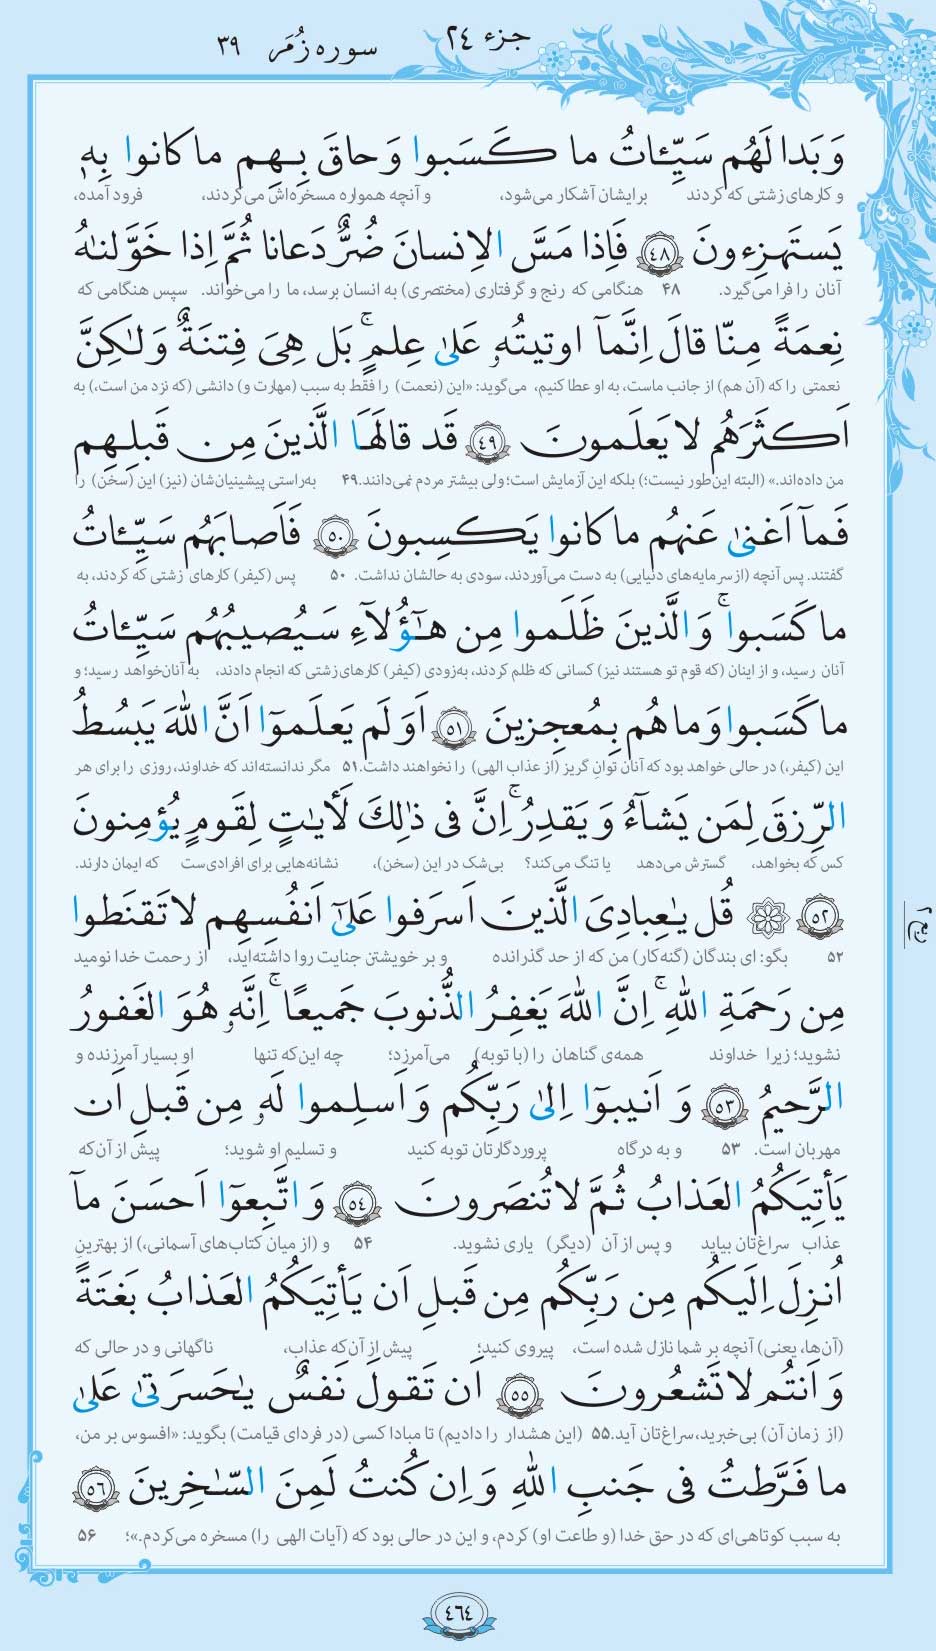 جزء ٢٤
سوره زُمَر ٣٩
وَ بَدا لَهُم سَيِّـٔاتُ ما كَسَبوا وَ حاقَ بِهِم ما كانوا بِهٖ
و کارهای زشتی که کردند برایشان آشکار می‌شود، و آنچه همواره مسخره‌اش می‌کردند، فرود آمده،
يَستَهزِءونَ ٤٨ فَاِذا مَسَّ الاِنسانَ ضُرٌّ دَعانا ثُمَّ اِذا خَوَّلنٰهُ
آنان را فرا می‌گیرد. ۴۸ هنگامی که رنج و گرفتاری (مختصری) به انسان برسد، ما را می‌خواند. سپس هنگامی که
نِعمَةً مِنّا قالَ اِنَّمآ اوتيتُهٗ عَلىٰ عِلمٍ ۚ بَل هِىَ فِتنَةٌ وَ لٰكِنَّ
نعمتی را که (آن هم) از جانب ماست، به او عطا کنیم، می‌گوید: «این (نعمت) را فقط به سبب (مهارت و) دانشی (که نزد من است،) به
اَكثَرَهُم لا يَعلَمونَ ٤٩ قَد قالَهَا الَّذينَ مِن قَبلِهِم
من داده‌اند.» (البته این‌طور نیست؛) بلکه این آزمایش است؛ ولی بیشتر مردم نمی‌دانند. ۴۹ به‌راستی پیشینیان‌شان (نیز) این (سخن) را
فَمآ اَغنىٰ عَنهُم ما كانوا يَكسِبونَ ٥٠ فَاَصابَهُم سَيِّـٔاتُ
گفتند. پس آنچه (از سرمایه‌های دنیایی) به دست می‌آوردند، سودی به حالشان نداشت. ۵۰ پس (کیفر) کارهای زشتی که کردند، به
ما كَسَبوا ۚ وَ الَّذينَ ظَلَموا مِن هٰٓؤُلآءِ سَيُصيبُهُم سَيِّـٔاتُ
آنان رسید، و از اینان (که قوم تو هستند نیز) کسانی که ظلم کردند، به‌زودی (کیفر) کارهای زشتی که انجام دادند، به آنان خواهد رسید؛ و
ما كَسَبوا وَ ما هُم بِمُعجِزينَ ٥١ اَوَ لَم يَعلَموٓا اَنَّ اللهَ يَبسُطُ
این (کیفر،) در حالی خواهد بود که آنان توانِ گریز (از عذاب الهی) را نخواهند داشت. ۵۱ مگر ندانسته‌اند که خداوند، روزی را برای هر
الرِّزقَ لِمَن يَشآءُ وَ يَقدِرُ ۚ اِنَّ فى ذٰلِكَ لَأٰيٰتٍ لِقَومٍ يُؤمِنونَ
کس که بخواهد، گسترش می‌دهد یا تنگ می‌کند؟ بی‌شک در این (سخن)، نشانه‌هایی برای افرادی‌ست که ایمان دارند.
٥٢ قُل يٰعِبادِىَ الَّذينَ اَسرَفوا عَلىٰٓ اَنفُسِهِم لا تَقنَطوا
۵۲ بگو: ای بندگان (گنه‌کار) من که از حد گذرانده و بر خویشتن جنایت روا داشته‌اید، از رحمت خدا نومید
مِن رَحمَةِ اللهِ ۚ اِنَّ اللهَ يَغفِرُ الذُّنوبَ جَميعًا ۚ اِنَّهٗ هُوَ الغَفورُ
نشوید؛ زیرا خداوند همه‌ی گناهان را (با توبه) می‌آمرزد؛ چه این‌که تنها او بسیار آمرزنده و
الرَّحيمُ ٥٣ وَ اَنيبوٓا اِلىٰ رَبِّكُم وَ اَسلِموا لَهٗ مِن قَبلِ اَن
مهربان است. ۵۳ و به درگاه پروردگارتان توبه کنید و تسلیم او شوید؛ پیش از آن‌که
يَأتِيَكُمُ العَذابُ ثُمَّ لا تُنصَرونَ ٥٤ وَ اتَّبِعوٓا اَحسَنَ مآ
عذاب سراغ‌تان بیاید و پس از آن (دیگر) یاری نشوید. ۵۴ و (از میان کتاب‌های آسمانی،) از بهترینِ
اُنزِلَ اِلَيكُم مِن رَبِّكُم مِن قَبلِ اَن يَأتِيَكُمُ العَذابُ بَغتَةً
(آن‌ها، یعنی) آنچه بر شما نازل شده است، پیروی کنید؛ پیش از آن‌که عذاب، ناگهانی و در حالی که
وَ اَنتُم لا تَشعُرونَ ٥٥ اَن تَقولَ نَفسٌ يٰحَسرَتىٰ عَلىٰ
(از زمان آن) بی‌خبرید، سراغ‌تان آید. ۵۵ (این هشدار را دادیم) تا مبادا کسی (در فردای قیامت) بگوید: «افسوس بر من،
ما فَرَّطتُ فى جَنبِ اللهِ وَ اِن كُنتُ لَمِنَ السّٰخِرينَ ٥٦
به سبب کوتاهی‌ای که در حق خدا (و طاعت او) کردم، و این در حالی بود که (آیات الهی را) مسخره می‌کردم.»؛ ۵۶
٤٦٤